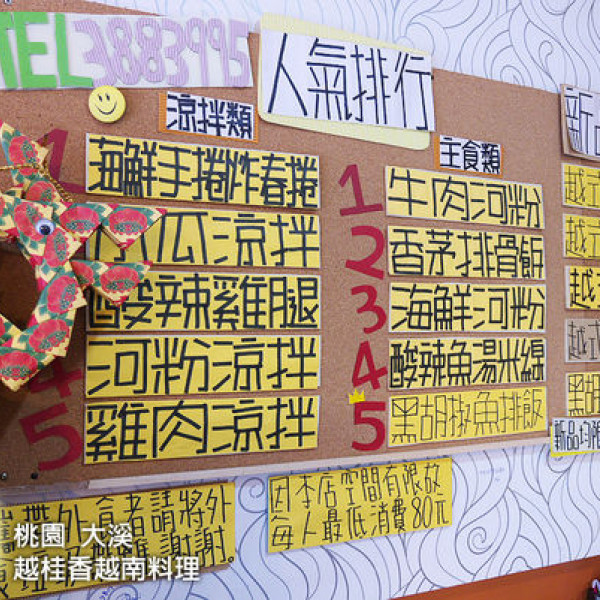 TEL 3883995
人氣排行
涼拌類
主食類
新
1 海鮮手捲炸春捲
瓜涼拌
酸辣雞腿
4 河粉涼拌
5 雞肉涼拌
1 牛肉河粉
2 香茅排骨飯
3 海鮮河粉
4 酸辣魚湯米線
5 黑胡椒魚排飯
越式
越式
越
越式
黑胡
新品均限
帶外言者請將外
謝謝。
因本店空間有限故
每人最低消費80元
桃園 大溪
越桂香越南料理